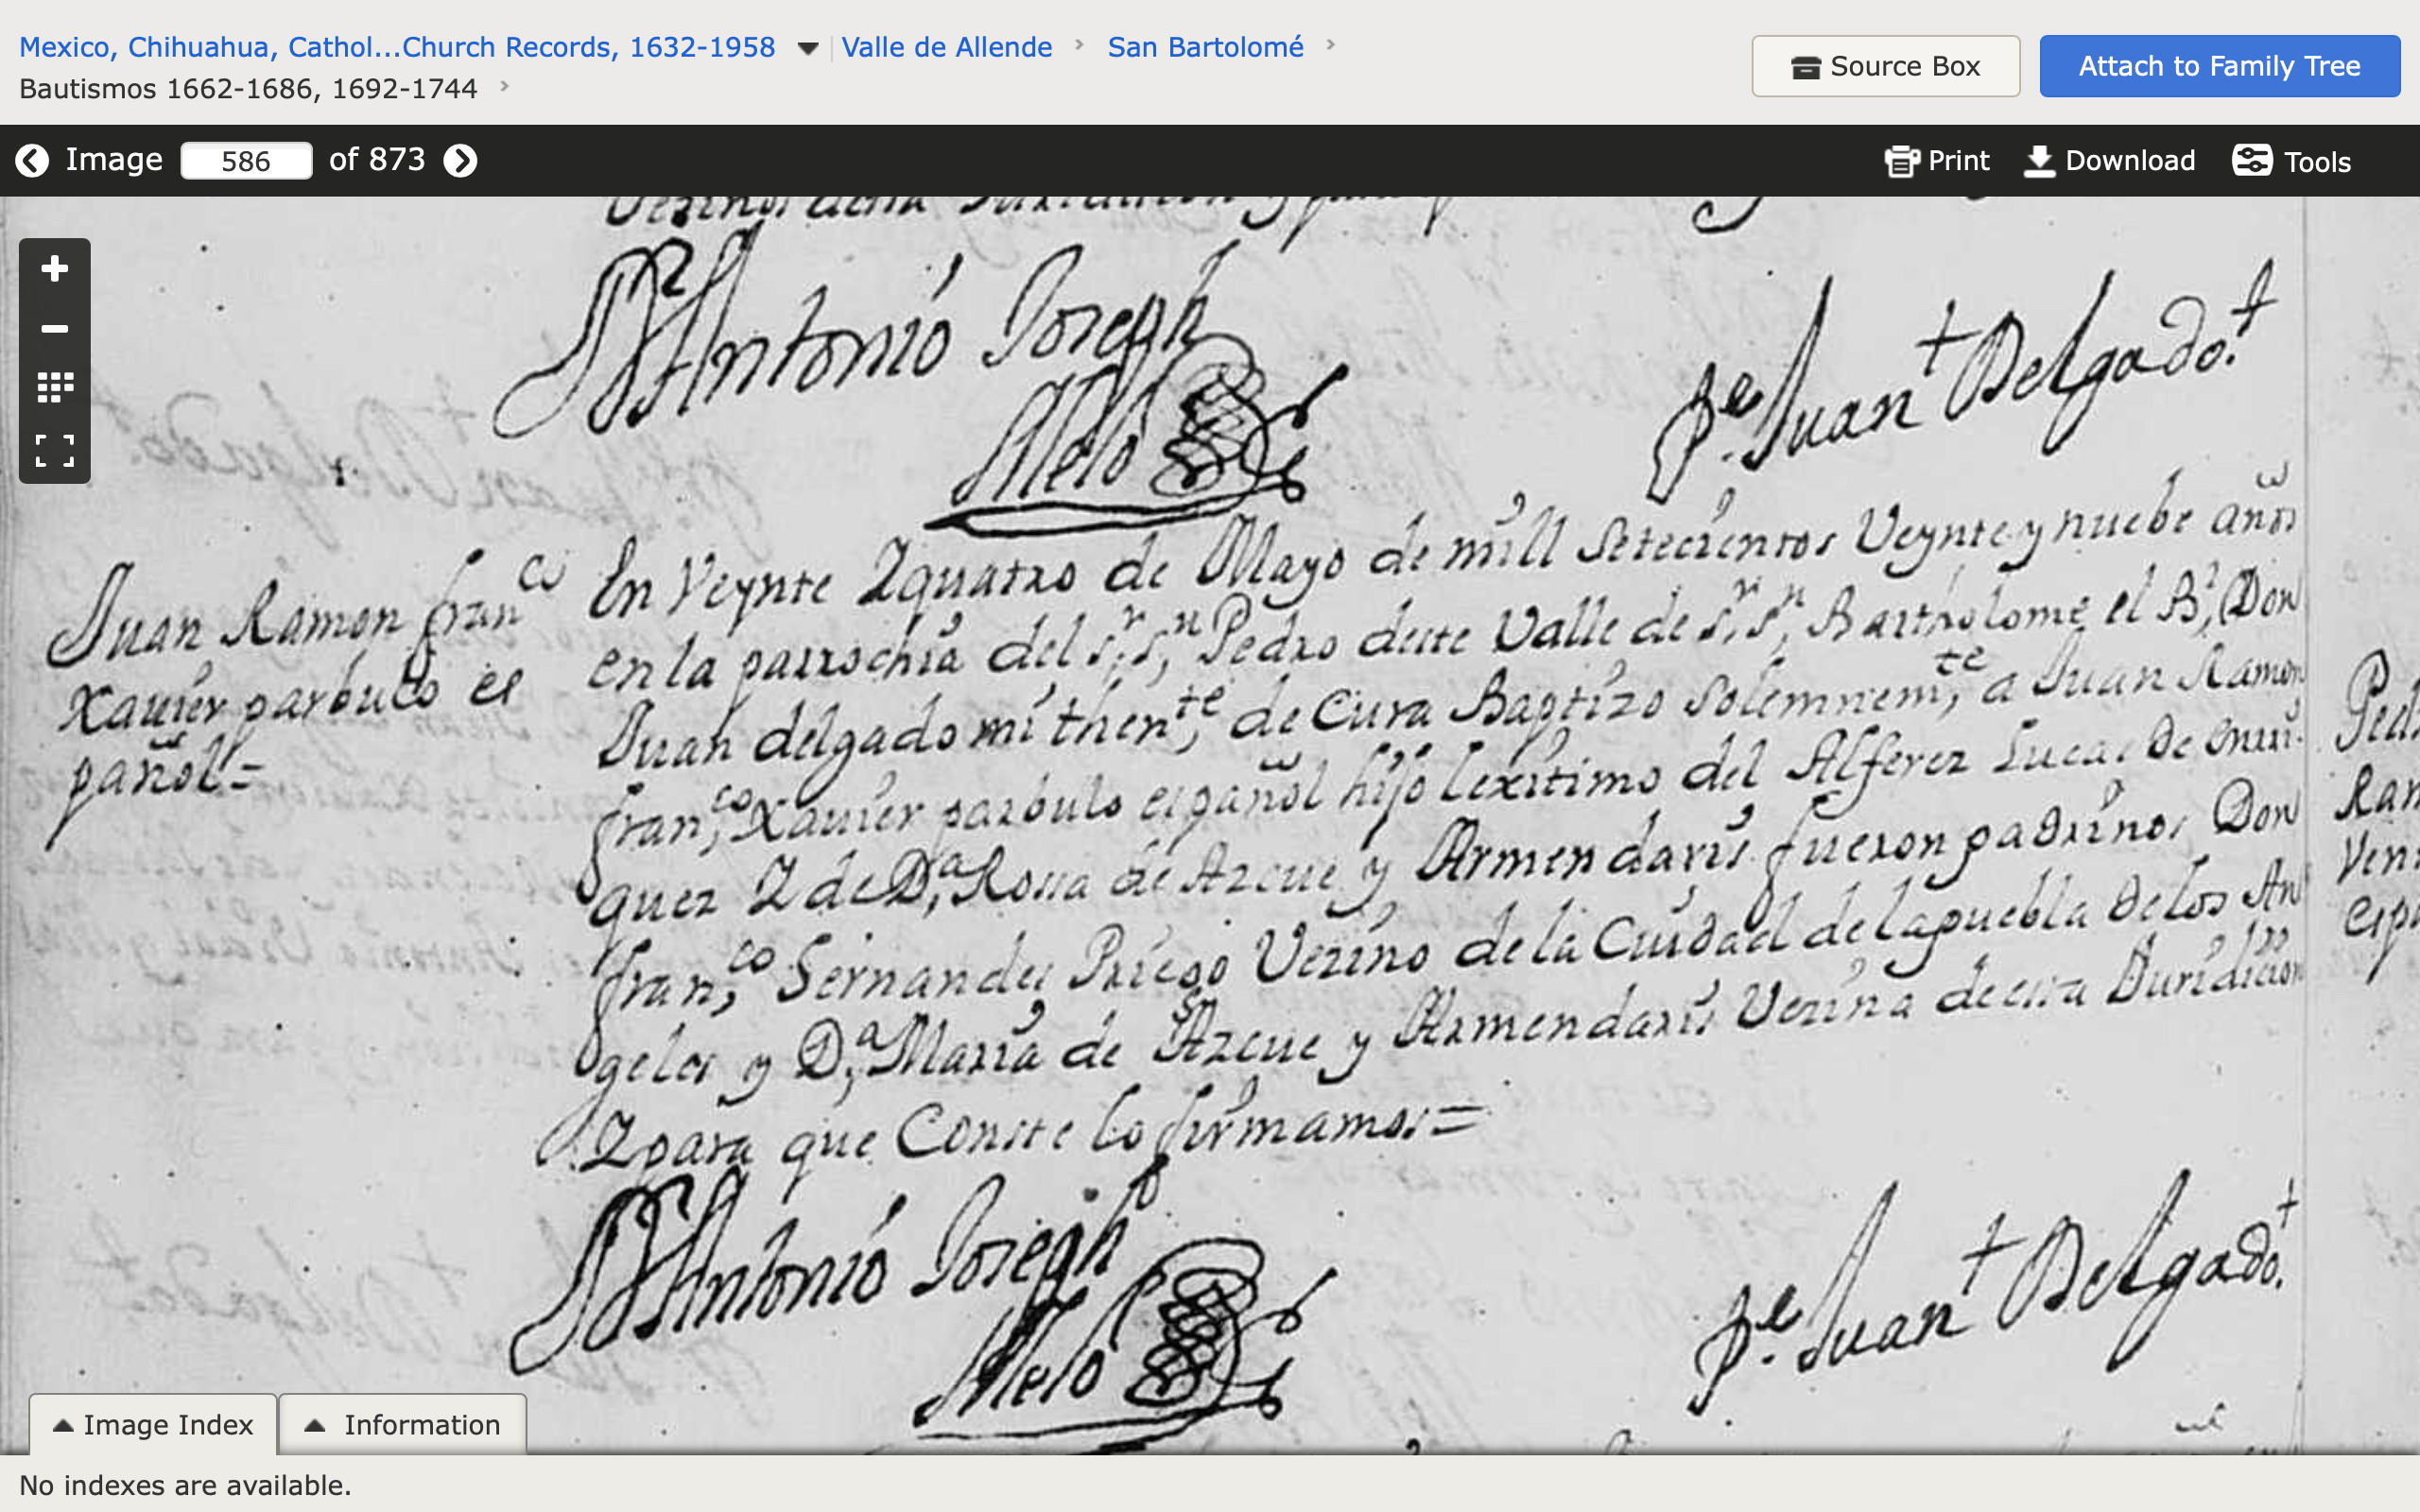 Mexico, Chihuahua, Cathol...Church Records, 1632-1958
Valle de Allende
San Bartolomé
Bautismos 1662-1686, 1692-1744
Source Box
Attach to Family Tree
Image 586 of 873
Print
Download
Tools
Antonio Joseph
Melo
Pe. Juan Delgado.
Juan Ramon Franco
Xauier parbulo es
pañol =
En Veynte Yquatro de Mayo de mill Setecientos Veynte y nuebe años
en la parrochia del sr. sn, Pedro deste Valle de sr. sn, Bartholome el Br, Don
Juan delgado mi thente, de Cura Baptizo Solemnemte, a Juan Ramon
Franco, Xauier parbulo español hijo lexitimo del Alferez Lucas de Enrri-
quez Y de Da, Rossa de Azcue y Armendaris fueron padrinos Don
Franco, Fernandes Priego Vezino de la Ciudad de la puebla de los An
geles y Da, Maria de Azcue y Armendaris Vezina de esta Juridicion
Y para que Conste lo firmamos =
Antonio Joseph
Melo
Pe. Juan Delgado.
Ran
Image Index
Information
No indexes are available.